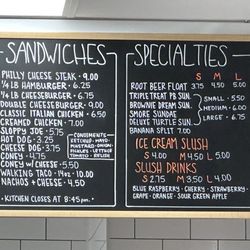 SANDWICHES
PHILLY CHEESE STEAK • 9.00
1/4 LB HAMBURGER • 6.25
1/4 LB CHEESEBURGER • 6.75
DOUBLE CHEESEBURGER • 9.00
CLASSIC ITALIAN CHICKEN • 6.50
CREAMED CHICKEN • 7.00
SLOPPY JOE • 5.75
HOT DOG • 3.25
CHEESE DOG • 3.75
CONEY • 4.75
CONEY W/ CHEESE • 5.50
WALKING TACO • 14oz • 10.00
NACHOS + CHEESE • 4.50
CONDIMENTS:
KETCHUP•MAYO
MUSTARD•ONION
PICKLES•LETTUCE
TOMATO•RELISH
• KITCHEN CLOSES AT 8:45pm •
SPECIALTIES
S M L
ROOT BEER FLOAT 3.75 4.50 5.00
TRIPLE TREAT PB SUN.
BROWNIE DREAM SUN.
SMORE SUNDAE
DELUXE TURTLE SUN.
SMALL • 5.50
MEDIUM • 6.00
LARGE • 6.75
BANANA SPLIT 7.00
ICE CREAM SLUSH
S 4.00 M 4.50 L 5.00
SLUSH DRINKS
S 2.75 M 3.50 L 4.00
BLUE RASPBERRY • CHERRY • STRAWBERRY
GRAPE • ORANGE • SOUR GREEN APPLE